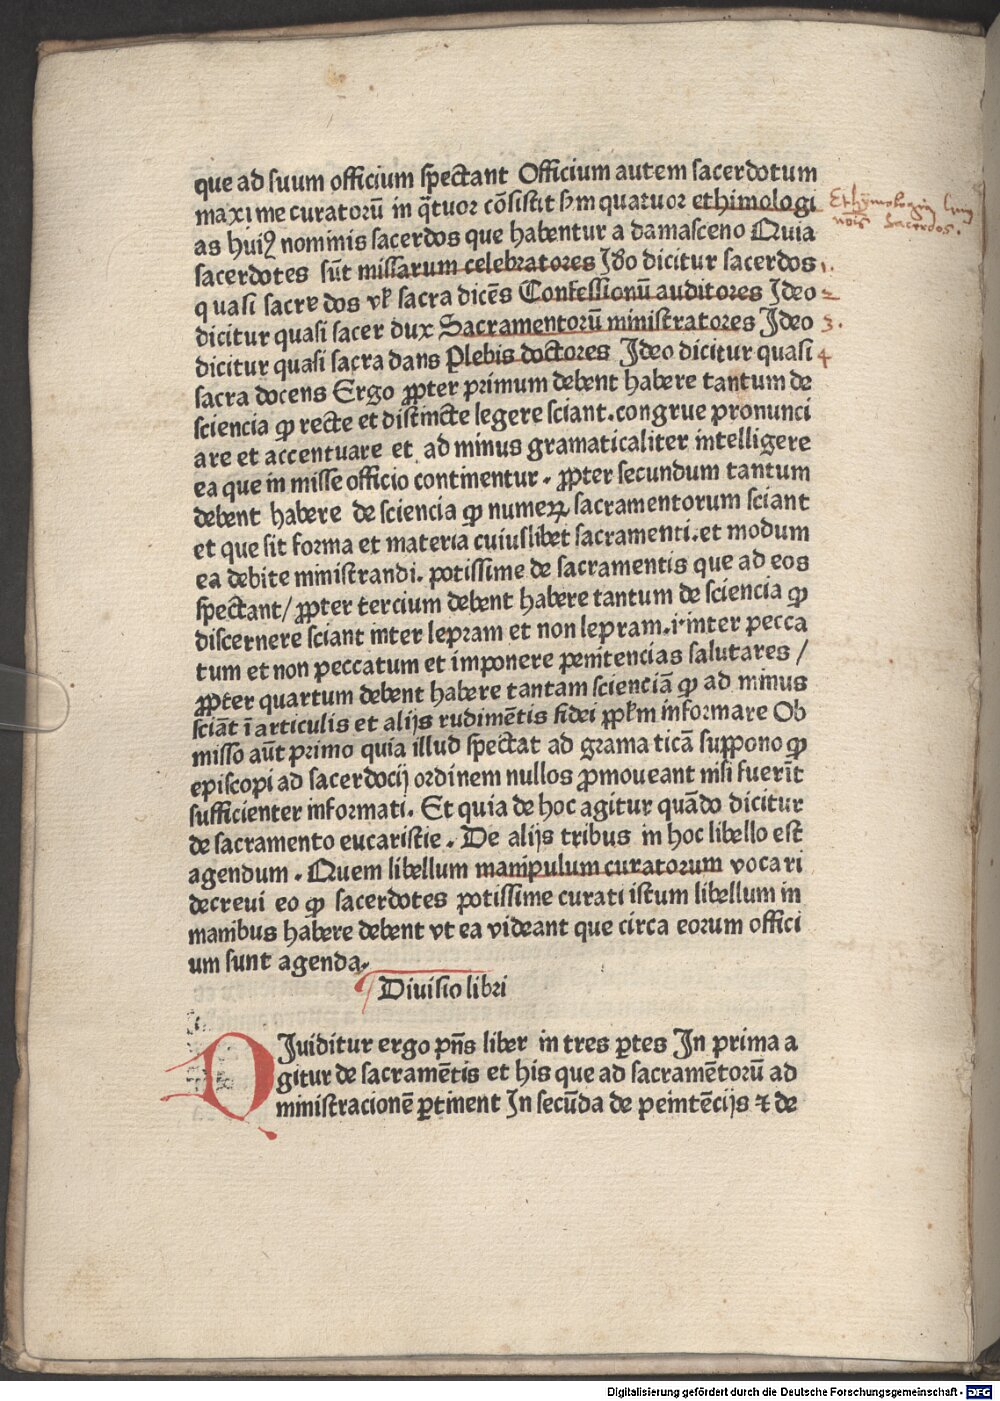 que ad suum officium spectant Officium autem sacerdotum
maxime curatorū in q̄tuor cōsistit sm quatuor ethimologi
as huiꝰ nominis sacerdos que habentur a damasceno Quia
sacerdotes sūt missarum celebratores Ido dicitur sacerdos
quasi sacre dos vl sacra dicēs Confessionū auditores Ideo
dicitur quasi sacer dux Sacramentorū ministratores Ideo
dicitur quasi sacra dans Plebis doctores Ideo dicitur quasi
sacra docens Ergo ꝓpter primum debent habere tantum de
sciencia ꝙ recte et distincte legere sciant. congrue pronunci
are et accentuare et ad minus gramaticaliter intelligere
ea que in misse officio continentur. ꝓpter secundum tantum
debent habere de sciencia ꝙ numeꝝ sacramentorum sciant
et que sit forma et materia cuiuslibet sacramenti. et modum
ea debite ministrandi. potissime de sacramentis que ad eos
spectant/ ꝓpter tercium debent habere tantum de sciencia ꝙ
discernere sciant inter lepram et non lepram. i· inter pecca
tum et non peccatum et imponere penitencias salutares /
ꝓpter quartum debent habere tantam scienciā ꝙ ad minus
sciāt ī articulis et alijs rudimētis fidei ppłm informare Ob
misso aūt primo quia illud spectat ad grama ticā suppono ꝙ
episcopi ad sacerdocij ordinem nullos ꝓmoueant nisi fuerīt
sufficienter informati. Et quia de hoc agitur quādo dicitur
de sacramento eucaristie. De alijs tribus in hoc libello est
agendum. Quem libellum manipulum curatorum vocari
decreui eo ꝙ sacerdotes potissime curati istum libellum in
manibus habere debent vt ea videant que circa eorum offici
um sunt agenda.
Ethymologia
nois Sacerdos.
1.
2
3.
4
Diuisio libri
DIuiditur ergo pn̄s liber in tres ꝑtes In prima a
gitur de sacramētis et his que ad sacramētorū ad
ministracionē ꝑtinent In secūda de penitēcijs ⁊ de
Digitalisierung gefördert durch die Deutsche Forschungsgemeinschaft - DFG